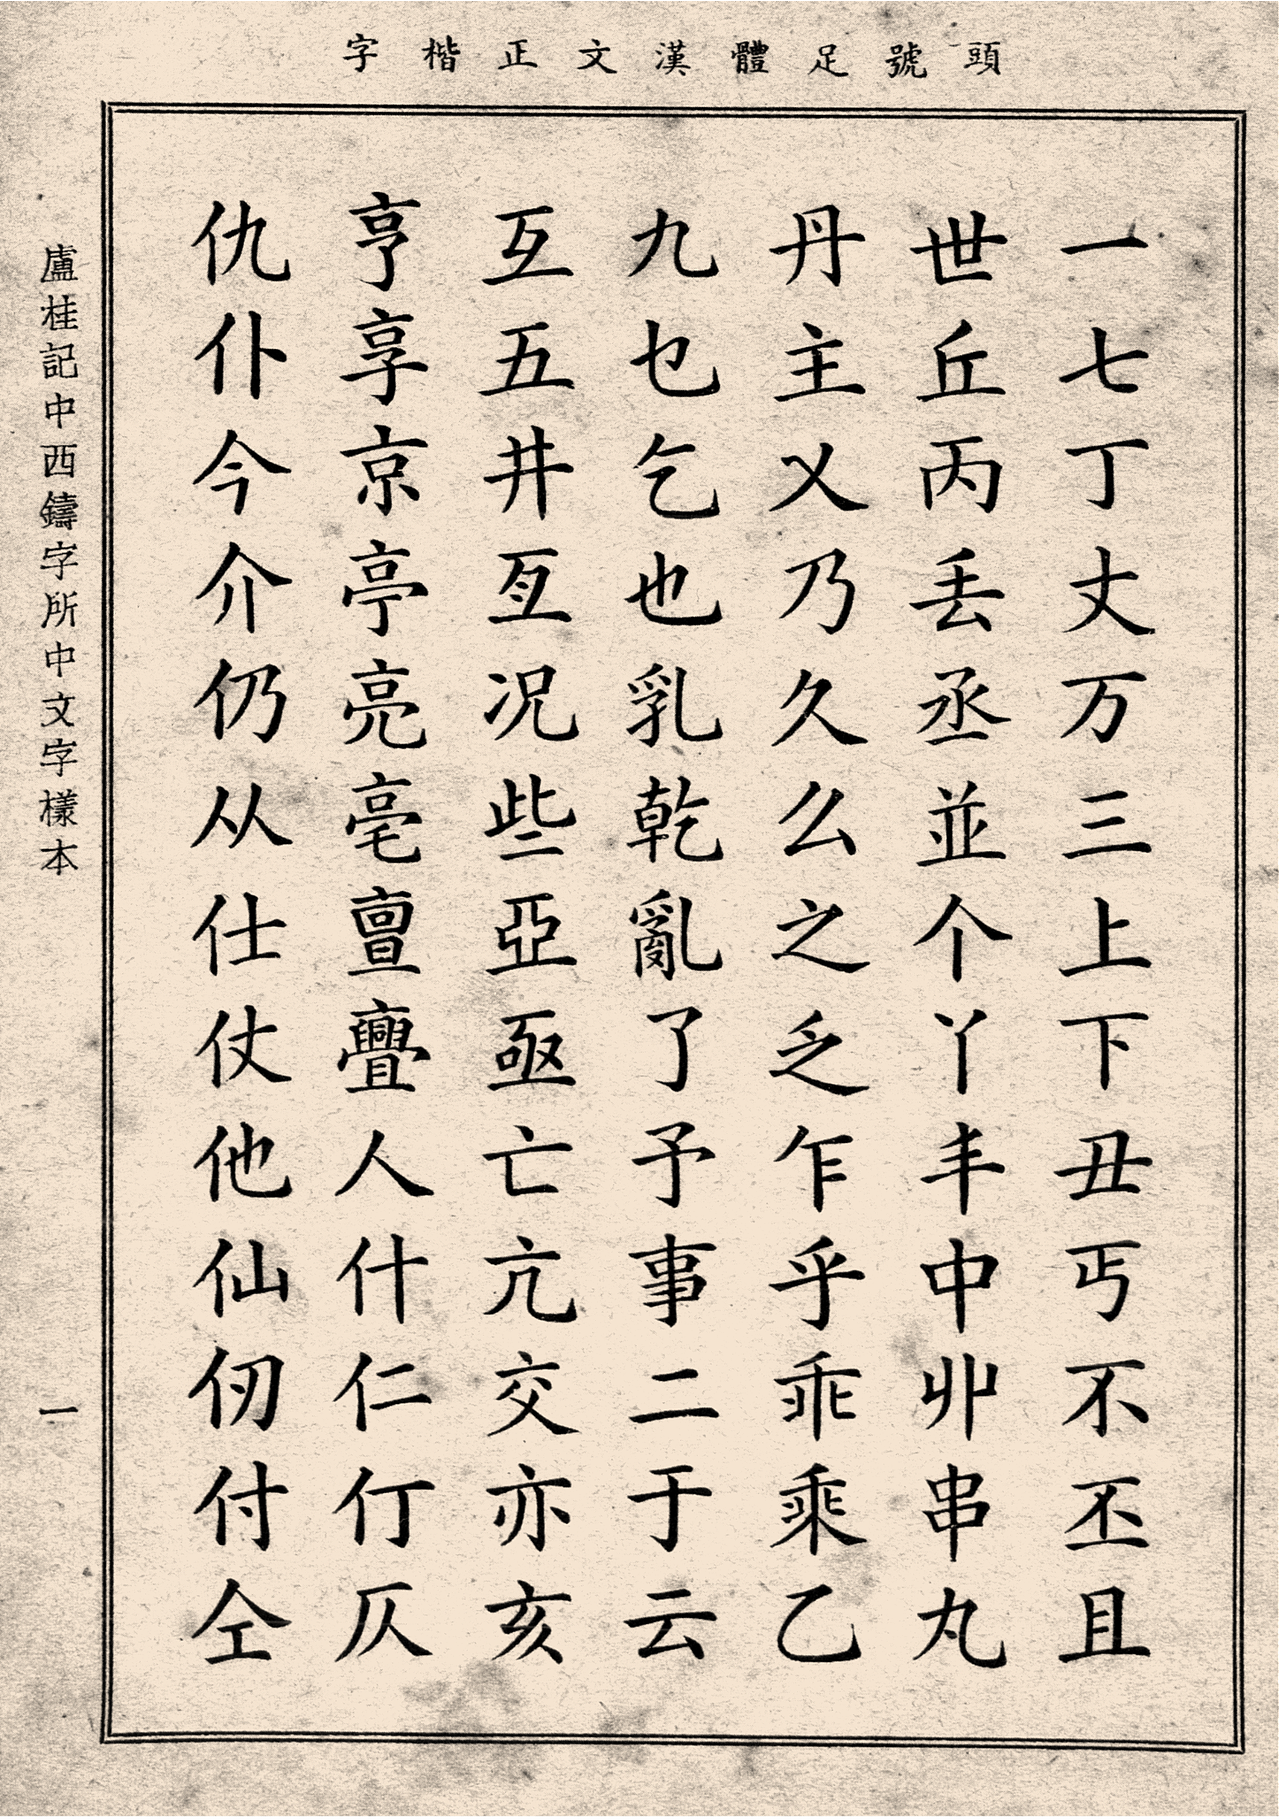 頭號足體漢文正楷字
一七丁丈万三上下丑丐不丕且
世丘丙丢丞並个丫丰中丱串丸
丹主乂乃久么之乏乍乎乖乘乙
九乜乞也乳乾亂了予事二于云
互五井亙况些亞亟亡亢交亦亥
亨享京亭亮亳亶亹人什仁仃仄
仇仆今介仍从仕仗他仙仞付仝
盧桂記中西鑄字所中文字樣本
一